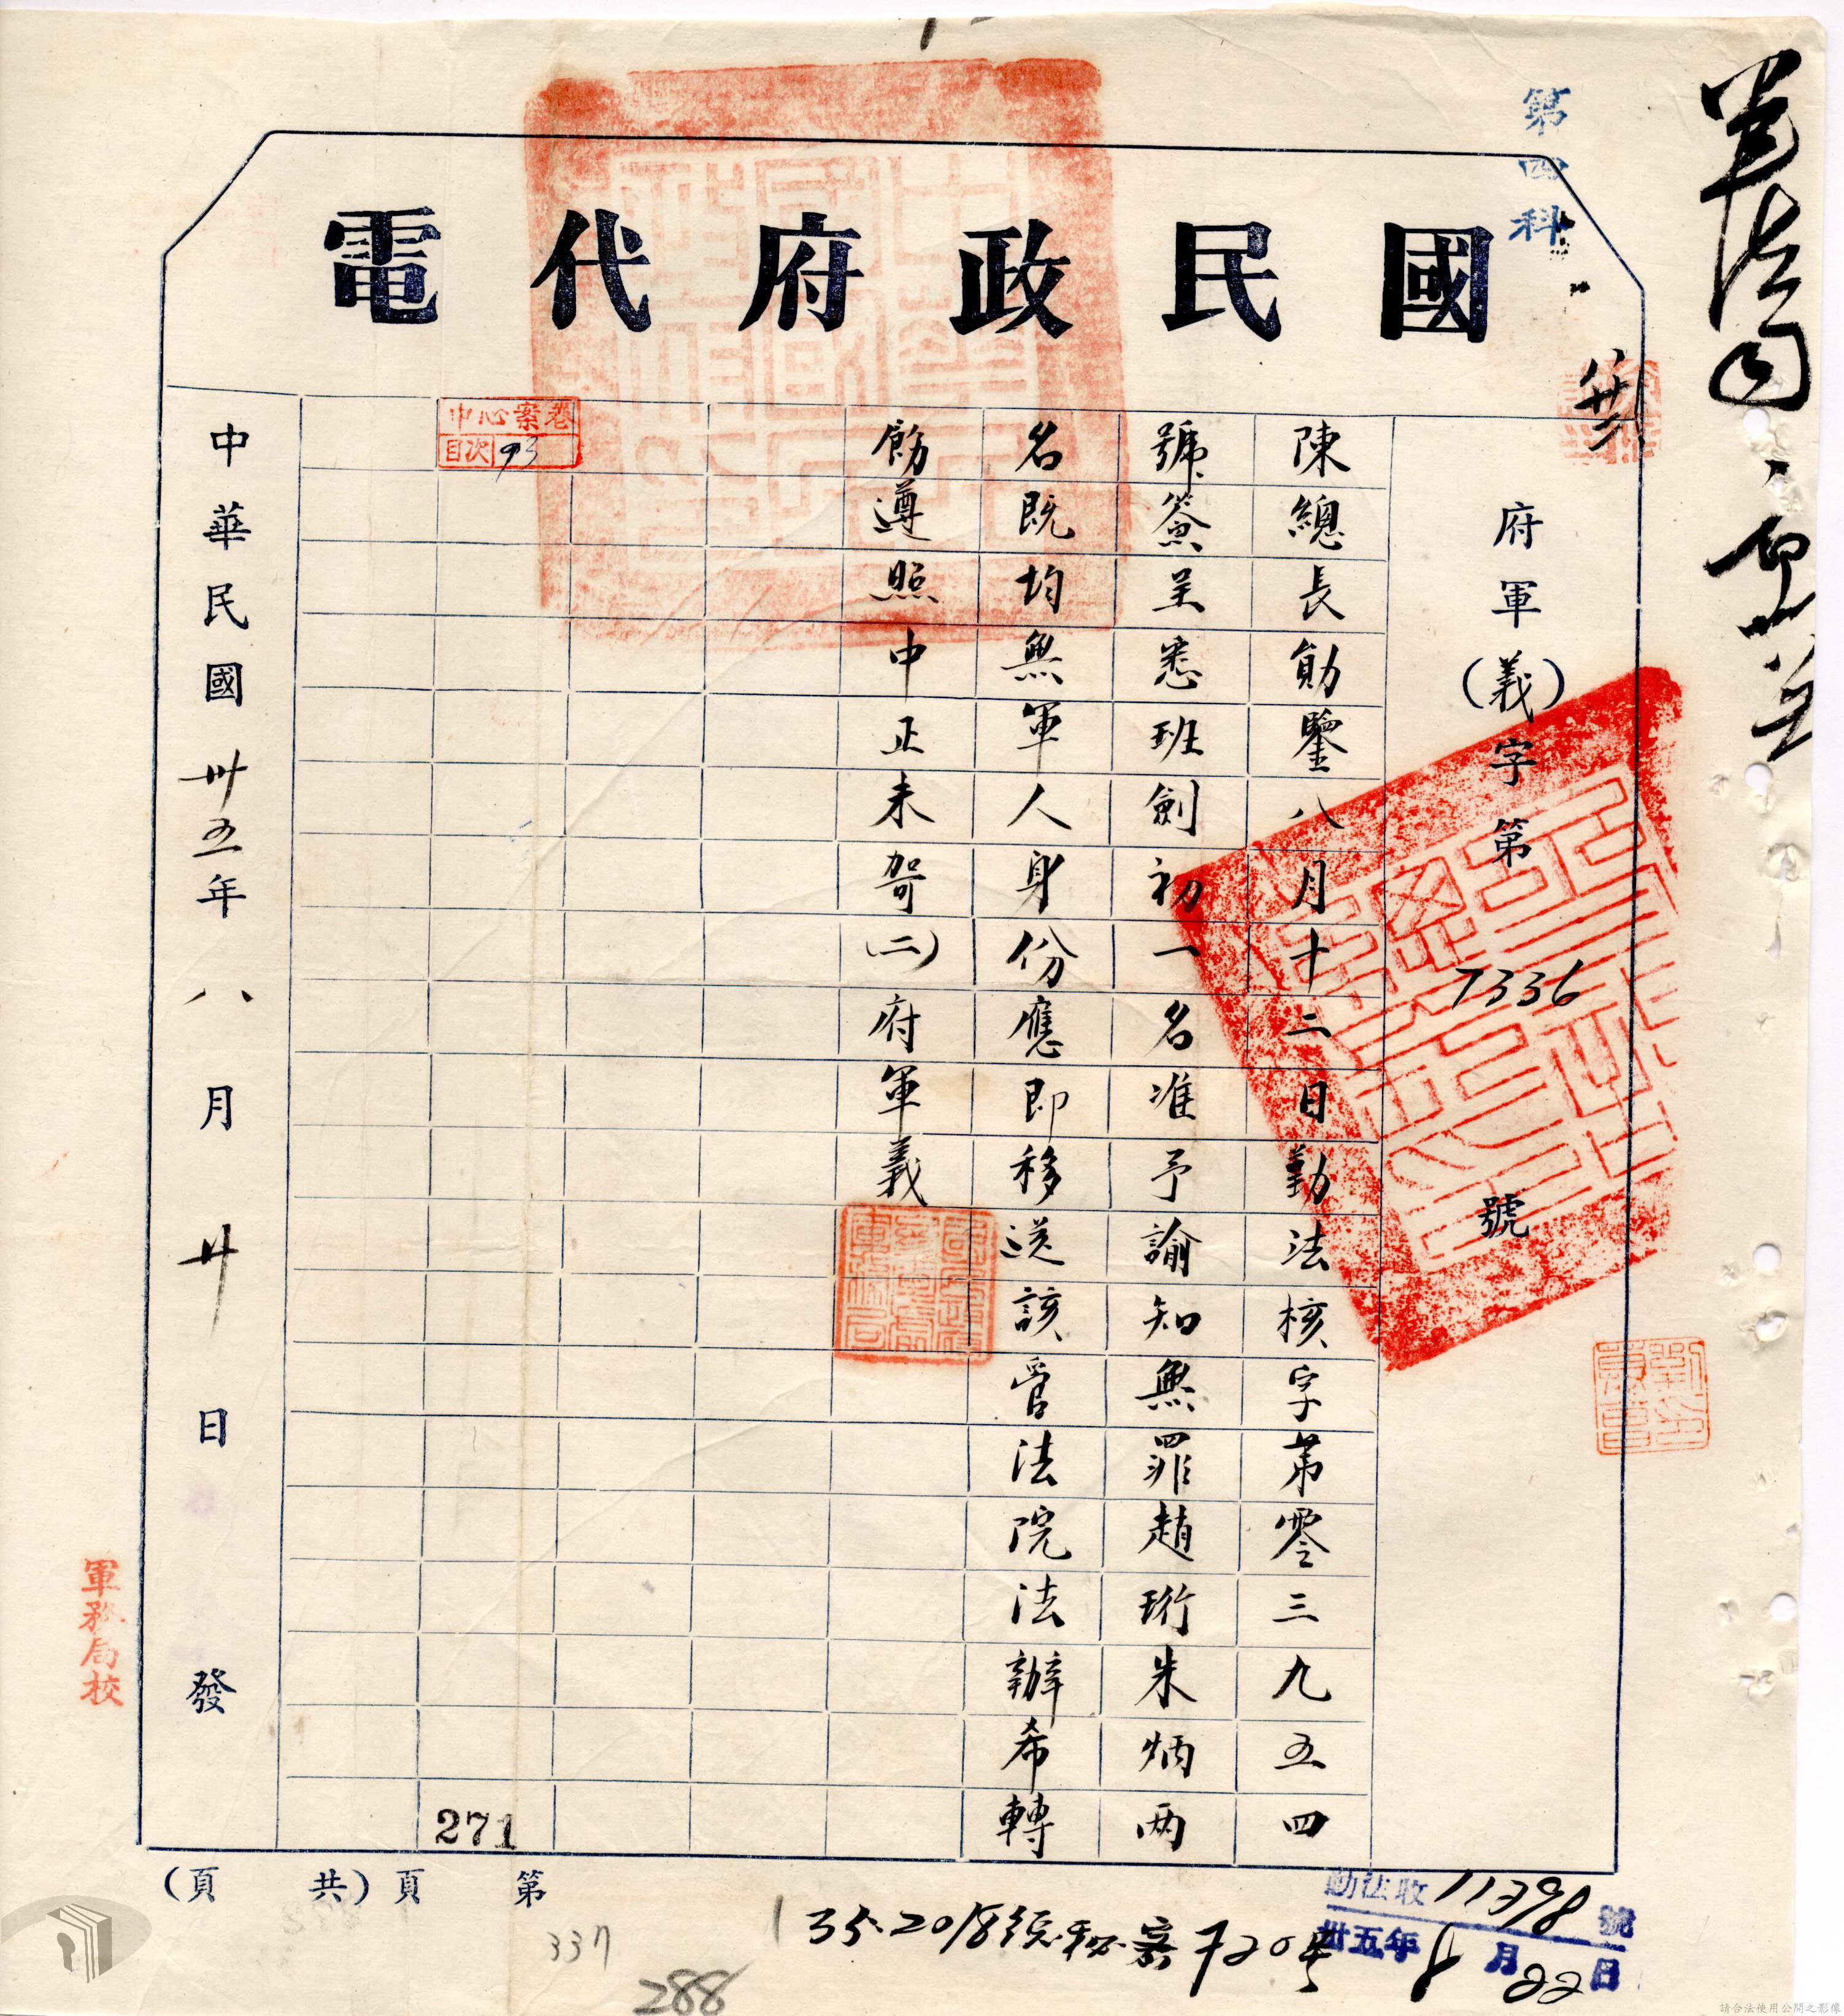 國民政府代電
第四科
軍法司
府軍(義)字第7336號
陳總長勛鑒八月十二日勤法核字第零三九五四
號簽呈悉班劍初一名准予諭知無罪趙珩朱炳兩
名既均無軍人身份應即移送該管法院法辦希轉
飭遵照中正未哿(二)府軍義
中心案卷
目次 93
中華民國卅五年八月廿日發
軍務局校
271
第 頁(共 頁)
勤法收11398號
卅五年8月22日
337
288
請合法使用公開之影像